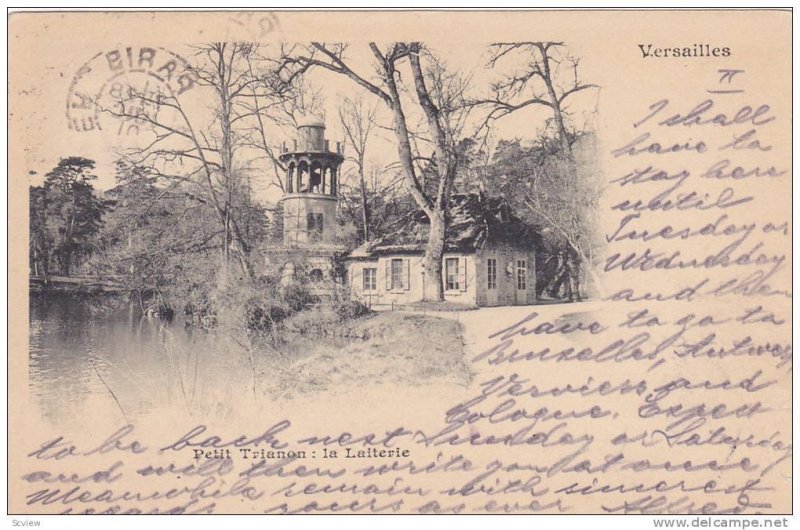 BIRAP
Versailles
II
I shall
have to
stay here
until
Tuesday or
Wednesday
and then
have to go to
Bruxelles, Antwerp
Verviers and
Cologne, Expect
to be back next Sunday or Saturday
Petit Trianon : la Laiterie
and will then write you at once,
Meanwhile remain with sincerest
regards yours as ever Alfred
Scview
www.hippostcard.com